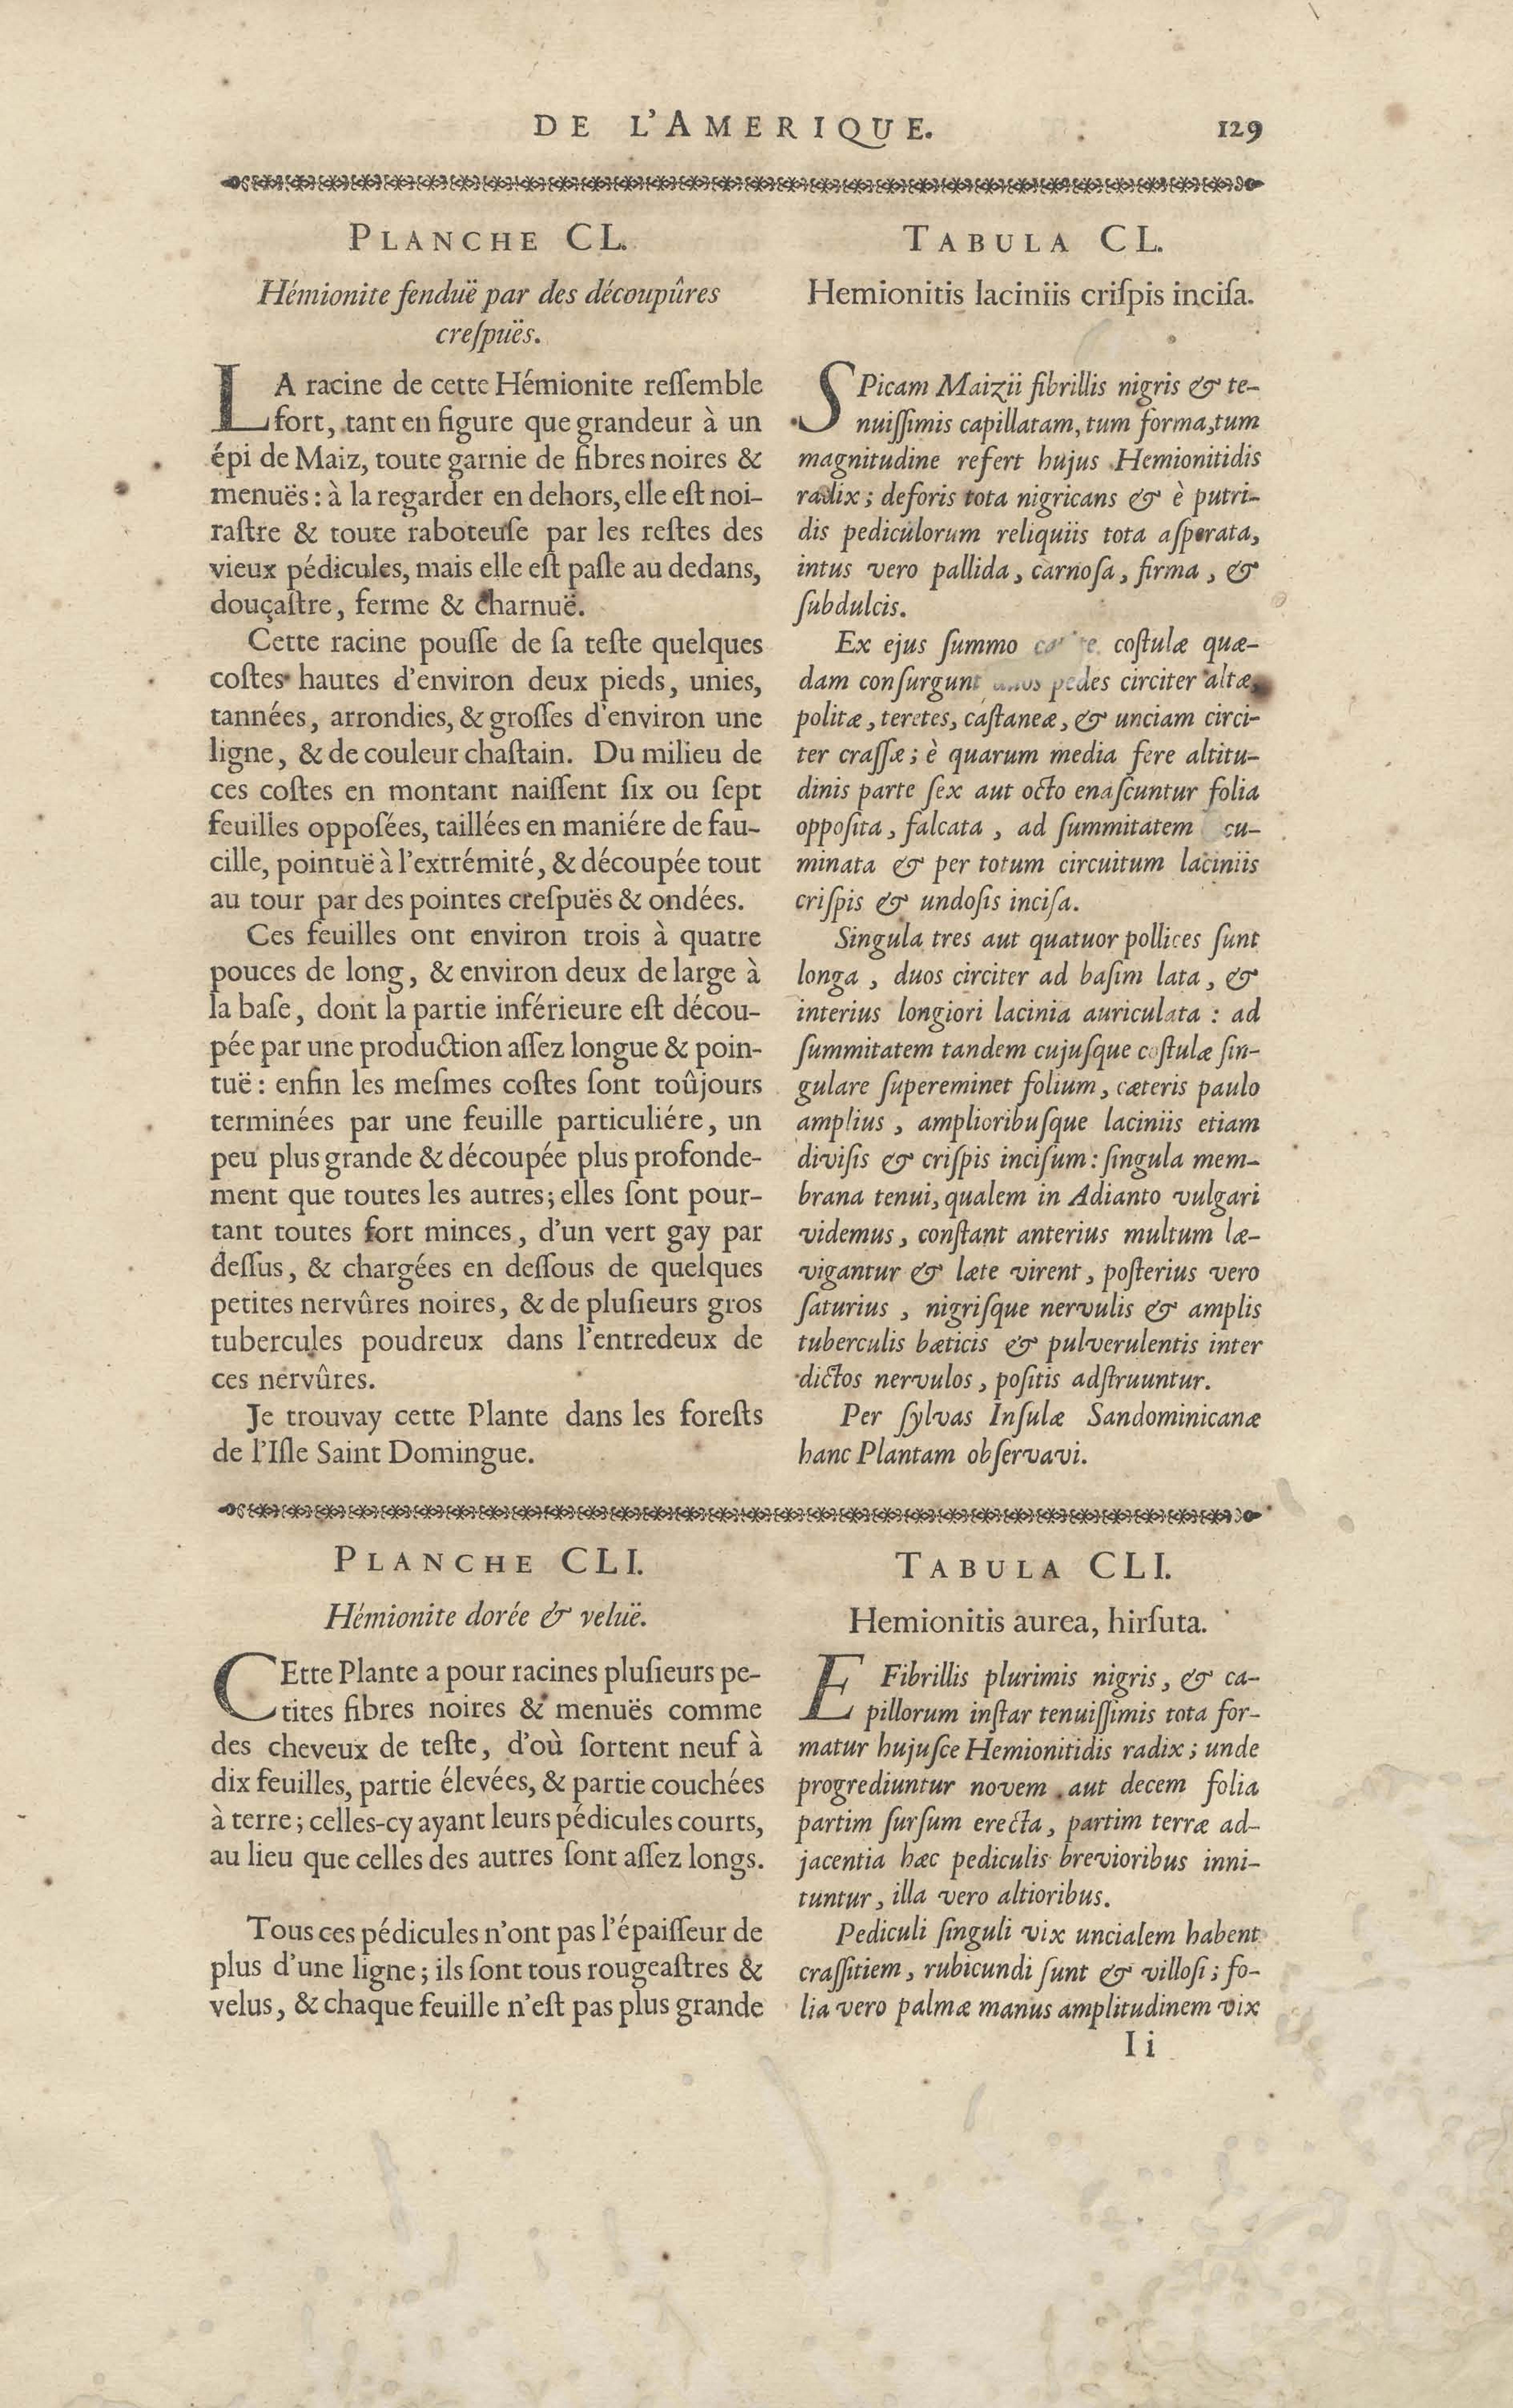 DE L'AMERIQUE. 129
PLANCHE CL.
Hémionite fenduë par des découpûres
creſpuës.
LA racine de cette Hémionite reſſemble
fort, tant en figure que grandeur à un
épi de Maiz, toute garnie de fibres noires &
menuës : à la regarder en dehors, elle eſt noi-
raſtre & toute raboteuſe par les reſtes des
vieux pédicules, mais elle eſt paſle au dedans,
douçaſtre, ferme & charnuë.
Cette racine pouſſe de ſa teſte quelques
coſtes hautes d'environ deux pieds, unies,
tannées, arrondies, & groſſes d'environ une
ligne, & de couleur chaſtain. Du milieu de
ces coſtes en montant naiſſent ſix ou ſept
feuilles oppoſées, taillées en maniére de fau-
cille, pointuë à l'extrémité, & découpée tout
au tour par des pointes creſpuës & ondées.
Ces feuilles ont environ trois à quatre
pouces de long, & environ deux de large à
la baſe, dont la partie inférieure eſt décou-
pée par une production aſſez longue & poin-
tuë : enfin les meſmes coſtes ſont toûjours
terminées par une feuille particuliére, un
peu plus grande & découpée plus profonde-
ment que toutes les autres; elles ſont pour-
tant toutes fort minces, d'un vert gay par
deſſus, & chargées en deſſous de quelques
petites nervûres noires, & de pluſieurs gros
tubercules poudreux dans l'entredeux de
ces nervûres.
Je trouvay cette Plante dans les foreſts
de l'Iſle Saint Domingue.
TABULA CL.
Hemionitis laciniis criſpis inciſa.
SPicam Maizii fibrillis nigris & te-
nuiſſimis capillatam, tum forma, tum
magnitudine refert hujus Hemionitidis
radix; deforis tota nigricans & è putri-
dis pediculorum reliquiis tota aſperata,
intus vero pallida, carnoſa, firma, &
ſubdulcis.
Ex ejus ſummo coſtulæ quæ-
dam conſurgunt pedes circiter altæ,
politæ, teretes, caſtaneæ, & unciam circi-
ter craſſæ; è quarum media fere altitu-
dinis parte ſex aut octo enaſcuntur folia
oppoſita, falcata, ad ſummitatem cu-
minata & per totum circuitum laciniis
criſpis & undoſis inciſa.
Singula tres aut quatuor pollices ſunt
longa, duos circiter ad baſim lata, &
interius longiori lacinia auriculata : ad
ſummitatem tandem cujuſque coſtulæ ſin-
gulare ſupereminet folium, cæteris paulo
amplius, amplioribuſque laciniis etiam
diviſis & criſpis inciſum : ſingula mem-
brana tenui, qualem in Adianto vulgari
videmus, conſtant anterius multum læ-
vigantur & læte virent, poſterius vero
ſaturius, nigriſque nervulis & amplis
tuberculis bæticis & pulverulentis inter
dictos nervulos, poſitis adſtruuntur.
Per ſylvas Inſulæ Sandominicanæ
hanc Plantam obſervavi.
PLANCHE CLI.
Hémionite dorée & veluë.
CEtte Plante a pour racines pluſieurs pe-
tites fibres noires & menuës comme
des cheveux de teſte, d'où ſortent neuf à
dix feuilles, partie élevées, & partie couchées
à terre; celles-cy ayant leurs pédicules courts,
au lieu que celles des autres ſont aſſez longs.
Tous ces pédicules n'ont pas l'épaiſſeur de
plus d'une ligne; ils ſont tous rougeaſtres &
velus, & chaque feuille n'eſt pas plus grande
TABULA CLI.
Hemionitis aurea, hirſuta.
E Fibrillis plurimis nigris, & ca-
pillorum inſtar tenuiſſimis tota for-
matur hujuſce Hemionitidis radix; unde
progrediuntur novem aut decem folia
partim ſurſum erecta, partim terræ ad-
jacentia hæc pediculis brevioribus inni-
tuntur, illa vero altioribus.
Pediculi ſinguli vix uncialem habent
craſſitiem, rubicundi ſunt & villoſi; fo-
lia vero palmæ manus amplitudinem vix
Ii